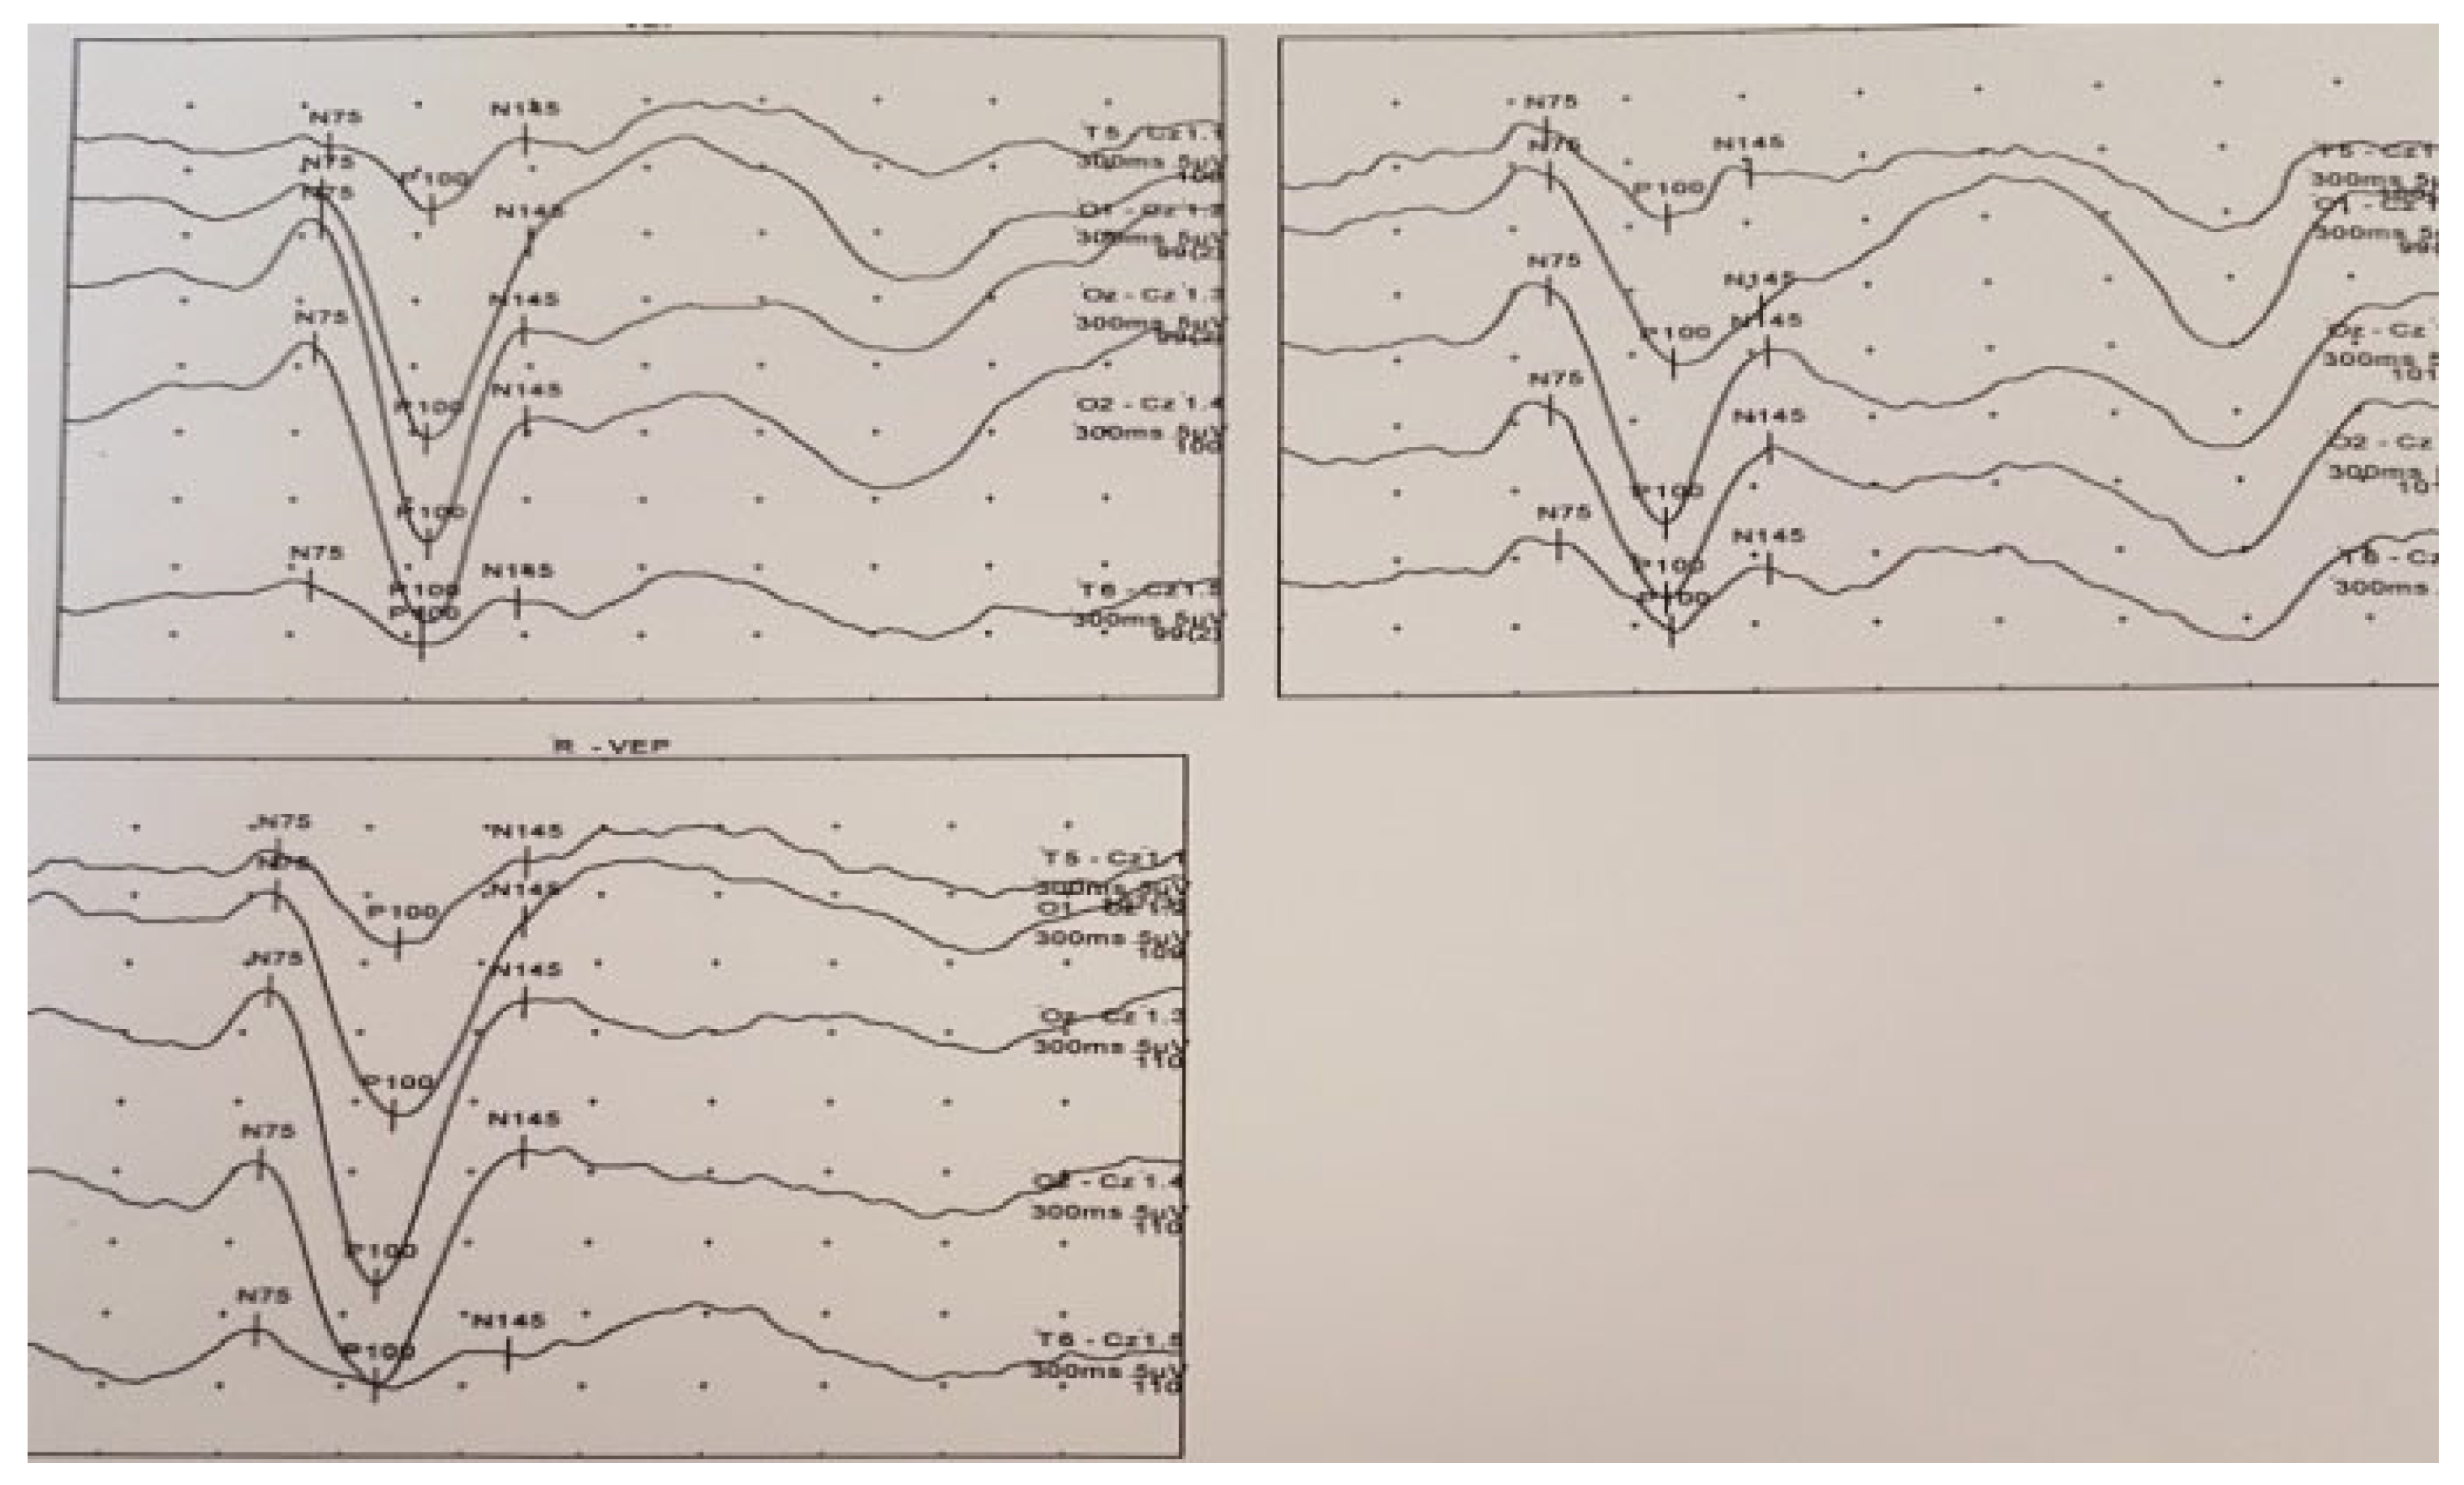 N75
N145
N75
P100
N75
N145
N75
N145
N145
P100
P100
N75
N145
P100
P100
T5 - Cz 1.1
300ms 5µV
100
O1 - Cz 1.2
300ms 5µV
99(2)
Oz - Cz 1.3
300ms 5µV
99(2)
O2 - Cz 1.4
300ms 5µV
100
T6 - Cz 1.5
300ms 5µV
99(2)
N75
N75
N145
P100
N75
N145
P100
N145
N75
N145
P100
N75
N145
P100
P100
T5 - Cz 1
300ms 5µ
O1 - Cz 1
300ms 5µ
Oz - Cz
300ms 5
101
O2 - Cz
300ms
10
T6 - Cz
300ms
R - VEP
N75
N145
N75
N145
P100
N75
N145
P100
N75
N145
P100
N75
N145
P100
T5 - Cz 1.1
300ms 5µV
O1 - Cz 1.2
300ms 5µV
109
Oz - Cz 1.3
300ms 5µV
110
O2 - Cz 1.4
300ms 5µV
110
T6 - Cz 1.5
300ms 5µV
110